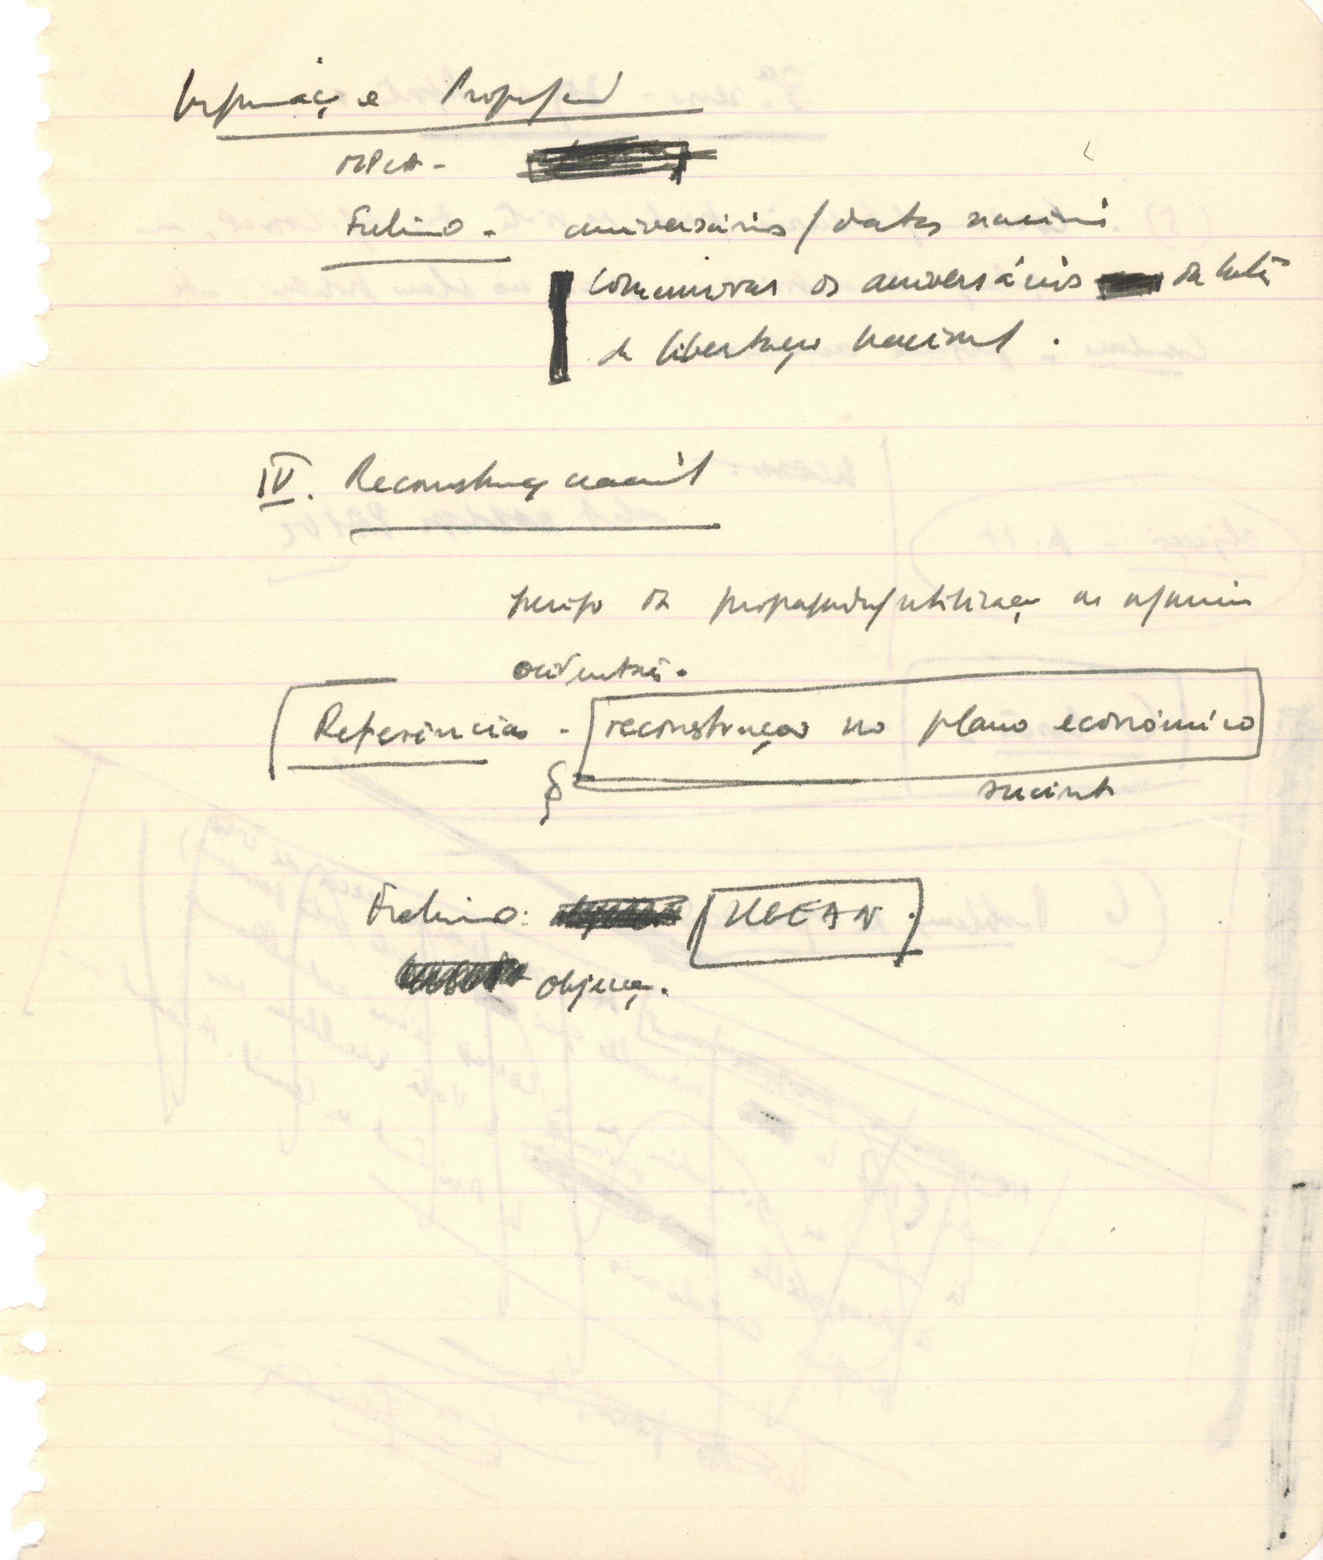 Informação e Propaganda
MPLA -
Frelimo - aniversários / datas nacionais
Comemorar os aniversários da luta
de libertação nacional.
IV. Reconstrução nacional
perigo da propaganda / utilização
ocidentais.
Referências - reconstrução no plano económico
sucinta
Frelimo: UGEAN.
objecção.